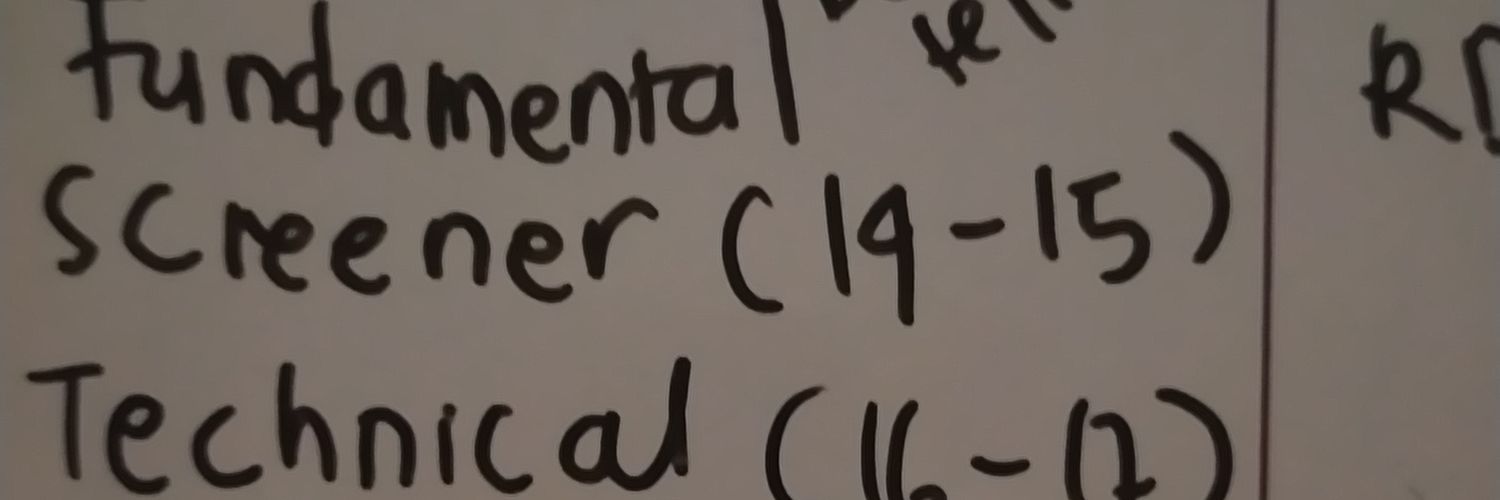 Fundamental
Screener (14-15)
Technical (16-17)